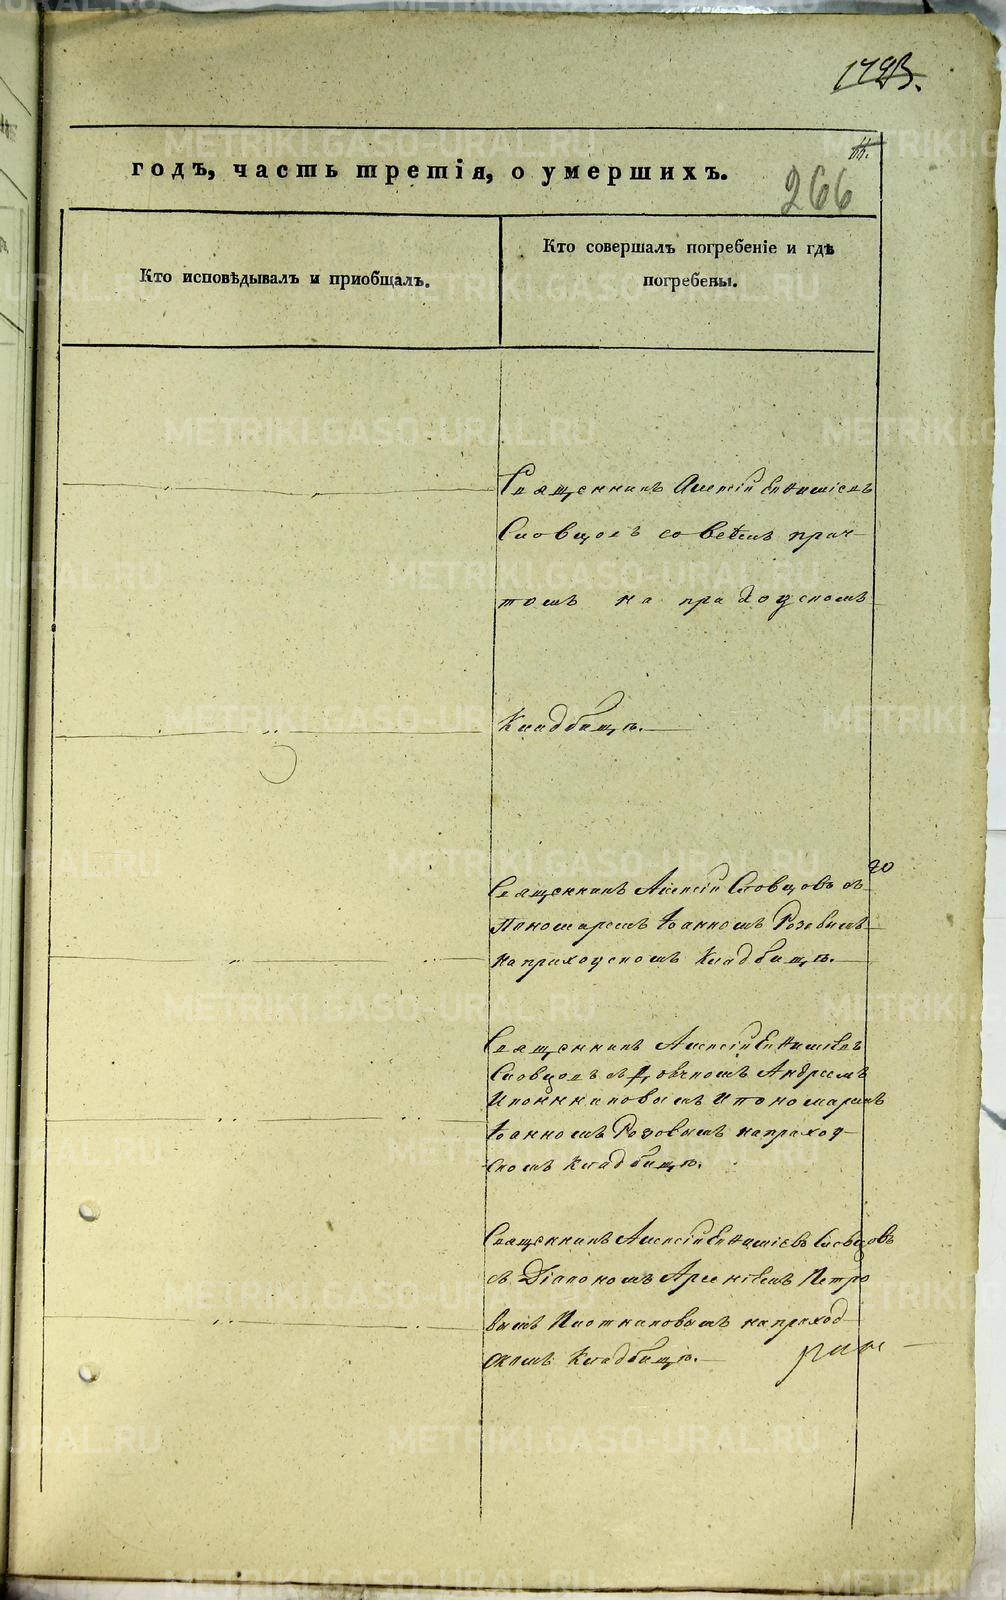 1793.
годъ, часть третія, о умершихъ.
266
Кто исповѣдывалъ и приобщалъ.
Кто совершалъ погребеніе и гдѣ
погребены.
Священникъ Алексій Евѳиміевъ
Словцовъ со всѣмъ прич-
томъ на приходскомъ
Кладбищѣ.
Священникъ Алексій Словцовъ съ
Пономаремъ Іоанномъ Розовымъ
на приходскомъ Кладбищѣ.
Священникъ Алексій Евѳиміевъ
Словцовъ съ Дьячкомъ Андреемъ
И Пономаремъ
Іоанномъ Розовымъ на приход-
скомъ Кладбищѣ.
Священникъ Алексій Евѳиміевъ Словцовъ
съ Діакономъ Арсеніемъ Петро
вымъ Плотниковымъ на приход
скомъ Кладбищѣ.
METRIKI.GASO-URAL.RU